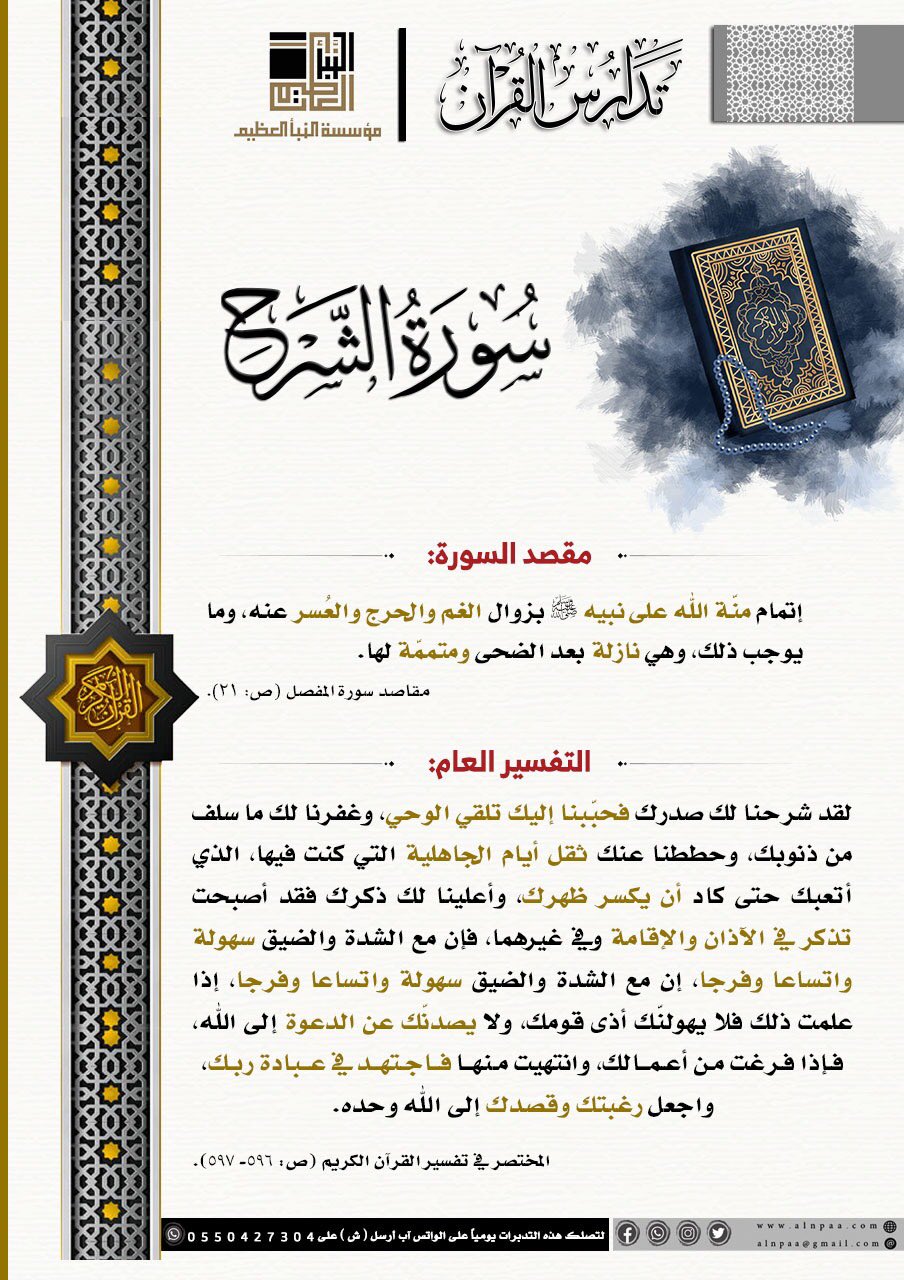 تَدَارُسُ القُرْآن
النبأ العظيم
مؤسسة النبأ العظيم
سُورَةُ الشَّرْحِ
مقصد السورة:
إتمام منّة الله على نبيه ﷺ بزوال الغم والحرج والعُسر عنه، وما
يوجب ذلك، وهي نازلة بعد الضحى ومتممّة لها.
مقاصد سورة المفصل (ص: ٢١).
القرآن الكريم
التفسير العام:
لقد شرحنا لك صدرك فحبّبنا إليك تلقي الوحي، وغفرنا لك ما سلف
من ذنوبك، وحططنا عنك ثقل أيام الجاهلية التي كنت فيها، الذي
أتعبك حتى كاد أن يكسر ظهرك، وأعلينا لك ذكرك فقد أصبحت
تذكر في الآذان والإقامة وفي غيرهما، فإن مع الشدة والضيق سهولة
واتساعا وفرجا، إن مع الشدة والضيق سهولة واتساعا وفرجا، إذا
علمت ذلك فلا يهولنّك أذى قومك، ولا يصدنّك عن الدعوة إلى الله،
فإذا فرغت من أعمالك، وانتهيت منها فاجتهد في عبادة ربك،
واجعل رغبتك وقصدك إلى الله وحده.
المختصر في تفسير القرآن الكريم (ص: ٥٩٦- ٥٩٧).
لتصلك هذه التدبرات يومياً على الواتس آب أرسل ( ش ) على 0550427304
www.alnpaa.com
alnpaa@gmail.com